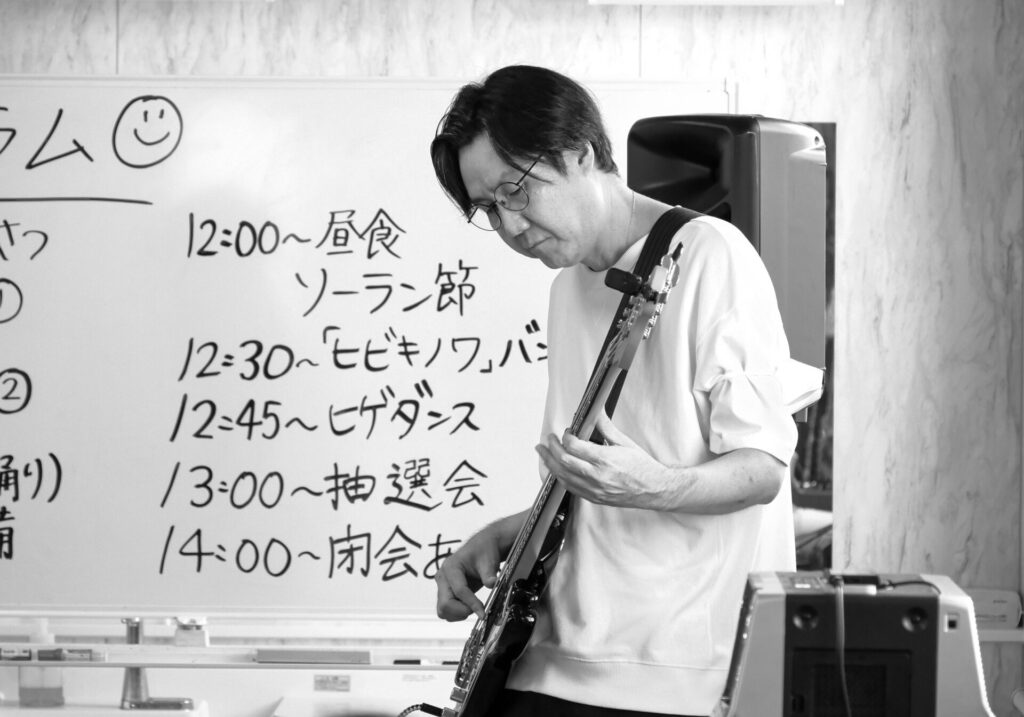 ラム
さつ
①
②
踊り)
備
12:00～昼食
ソーラン節
12:30～「ヒビキノワ」バン
12:45～ヒゲダンス
13:00～抽選会
14:00～閉会あ